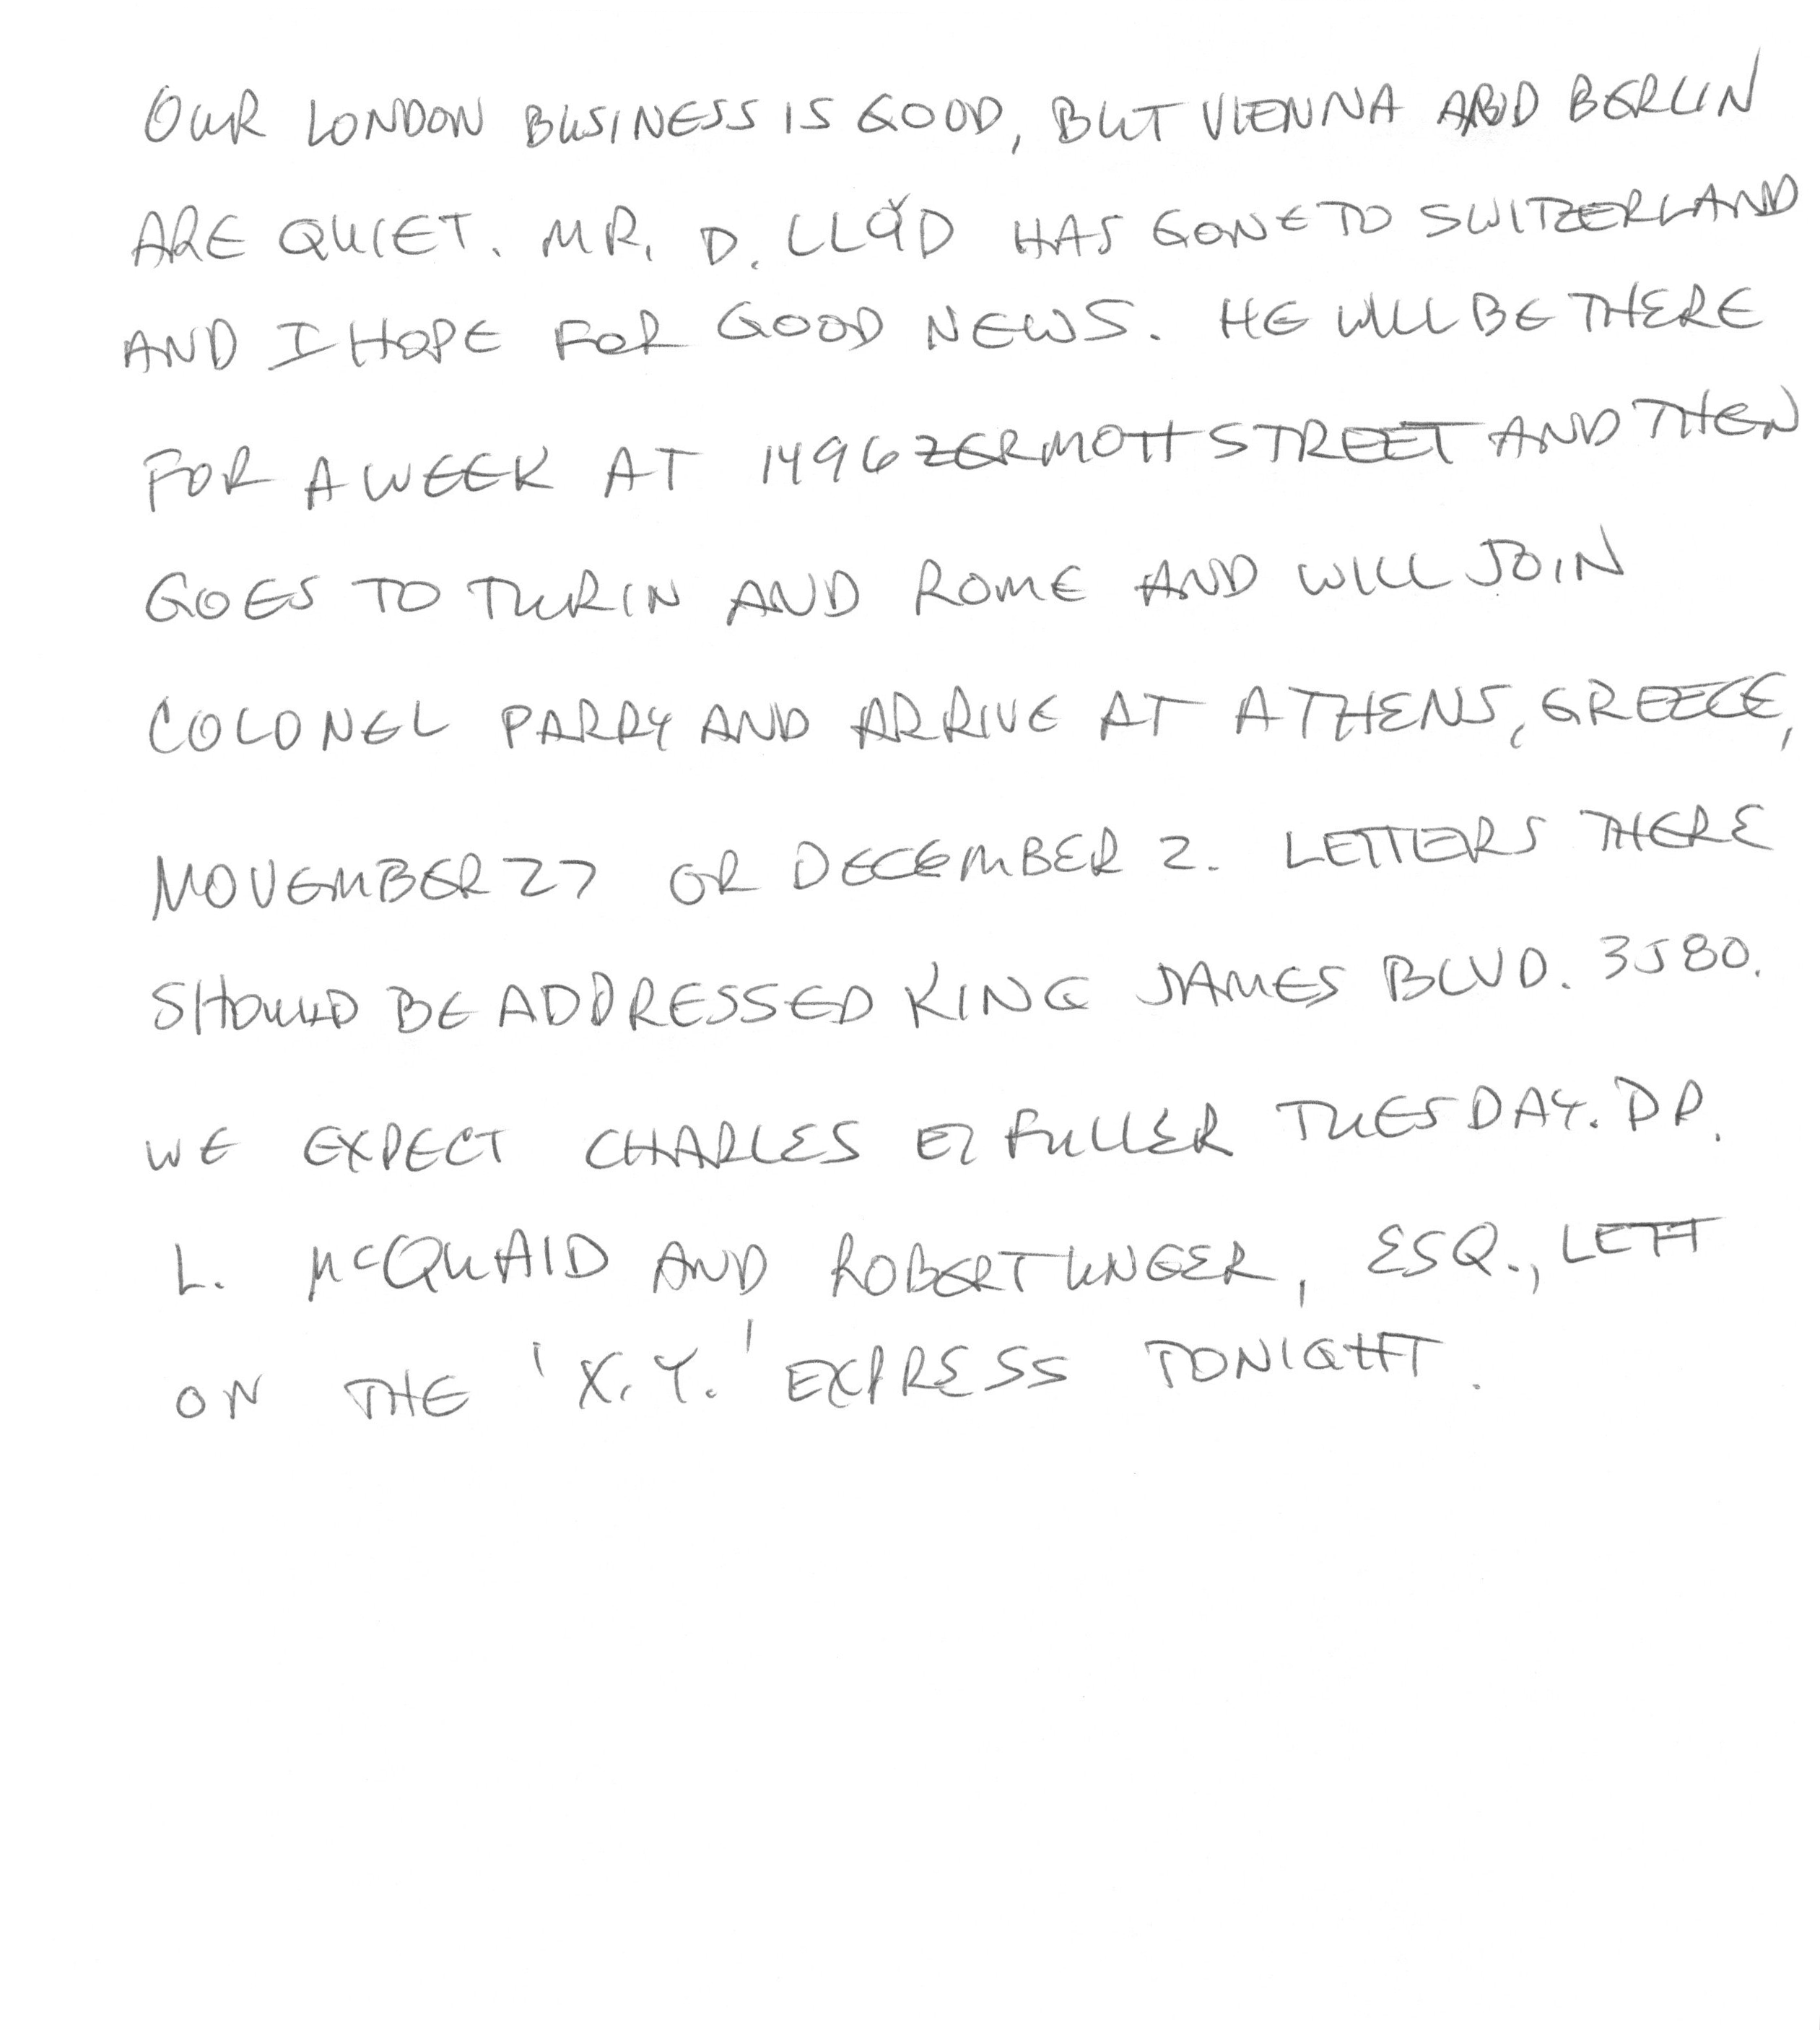 OUR LONDON BUSINESS IS GOOD, BUT VIENNA AND BERLIN
ARE QUIET. MR. D. LLOYD HAS GONE TO SWITZERLAND
AND I HOPE FOR GOOD NEWS. HE WILL BE THERE
FOR A WEEK AT 1496 ZERMOTT STREET AND THEN
GOES TO TURIN AND ROME AND WILL JOIN
COLONEL PARRY AND ARRIVE AT ATHENS, GREECE,
NOVEMBER 27 OR DECEMBER 2. LETTERS THERE
SHOULD BE ADDRESSED KING JAMES BLVD. 3580.
WE EXPECT CHARLES FULLER TUESDAY. DR.
L. MCQUAID AND ROBERT UNGER, ESQ., LEFT
ON THE 'X.Y.' EXPRESS TONIGHT.